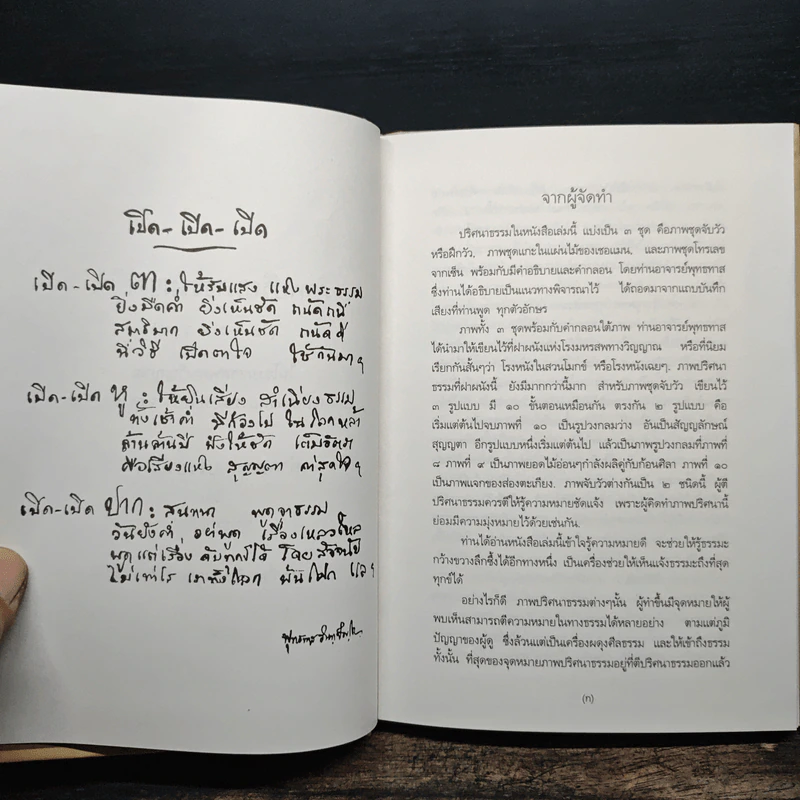 เปิด-เปิด-เปิด
เปิด-เปิด ตา : ให้รับแสง แห่ง พระธรรม
ยิ่งมืดค่ำ ยิ่งเห็นชัด ถนัดถนี่
สมาธิมาก ยิ่งเห็นชัด ถนัดดี
นี่วิธี เปิดตาใจ ใช้กันมาฯ
เปิด-เปิด หู : ให้ยินเสียง สำเนียงธรรม
ทั้งเช้าค่ำ มีก้องไป ในโลกหล้า
ล้านล้านปี ฟังให้ชัด เต็มอัตรา
คือเสียงแห่ง สุญญตา ค่าสุดใจฯ
เปิด-เปิด ปาก : สนทนา พูดจาธรรม
วันยังค่ำ อย่าพูด เรื่องเหลวไหล
พูดแต่เรื่อง ดับทุกข์ได้ โดยสัจจนัย
ไม่เท่าไร เราทั้งโลก พ้นโศก แลฯ
พุทธทาส อินฺทปญฺโญ
จากผู้จัดทำ
ปริศนาธรรมในหนังสือเล่มนี้ แบ่งเป็น ๓ ชุด คือภาพชุดจับวัว
หรือฝึกวัว, ภาพชุดแกะในแผ่นไม้ของเซอแมน, และภาพชุดโทรเลข
จากเซ็น พร้อมกับมีคำอธิบายและคำกลอน โดยท่านอาจารย์พุทธทาส
ซึ่งท่านได้อธิบายเป็นแนวทางพิจารณาไว้ ได้ถอดมาจากแถบบันทึก
เสียงที่ท่านพูด ทุกตัวอักษร
ภาพทั้ง ๓ ชุดพร้อมกับคำกลอนใต้ภาพ ท่านอาจารย์พุทธทาส
ได้นำมาให้เขียนไว้ที่ฝาผนังแห่งโรงมหรสพทางวิญญาณ หรือที่นิยม
เรียกกันสั้นๆว่า โรงหนังในสวนโมกข์ หรือโรงหนังเฉยๆ. ภาพปริศนา
ธรรมที่ฝาผนังนี้ ยังมีมากกว่านี้มาก สำหรับภาพชุดจับวัว เขียนไว้
๓ รูปแบบ มี ๑๐ ขั้นตอนเหมือนกัน ตรงกัน ๒ รูปแบบ คือ
เริ่มแต่ต้นไปจบภาพที่ ๑๐ เป็นรูปวงกลมว่าง อันเป็นสัญญลักษณ์
สุญญตา อีกรูปแบบหนึ่งเริ่มแต่ต้นไป แล้วเป็นภาพรูปวงกลมที่ภาพที่
๘ ภาพที่ ๙ เป็นภาพยอดไม้อ่อนๆกำลังผลิคู่กับก้อนศิลา ภาพที่ ๑๐
เป็นภาพแจกของส่องตะเกียง. ภาพจับวัวต่างกันเป็น ๒ ชนิดนี้ ผู้ตี
ปริศนาธรรมควรตีให้รู้ความหมายชัดแจ้ง เพราะผู้คิดทำภาพปริศนานี้
ย่อมมีความมุ่งหมายไว้ด้วยเช่นกัน.
ท่านได้อ่านหนังสือเล่มนี้เข้าใจรู้ความหมายดี จะช่วยให้รู้ธรรมะ
กว้างขวางลึกซึ้งได้อีกทางหนึ่ง เป็นเครื่องช่วยให้เห็นแจ้งธรรมะถึงที่สุด
ทุกข์ได้
อย่างไรก็ดี ภาพปริศนาธรรมต่างๆนั้น ผู้ทำขึ้นมีจุดหมายให้ผู้
พบเห็นสามารถตีความหมายในทางธรรมได้หลายอย่าง ตามแต่ภูมิ
ปัญญาของผู้ดู ซึ่งล้วนแต่เป็นเครื่องผดุงศีลธรรม และให้เข้าถึงธรรม
ทั้งนั้น ที่สุดของจุดหมายภาพปริศนาธรรมอยู่ที่ตีปริศนาธรรมออกแล้ว
(ก)